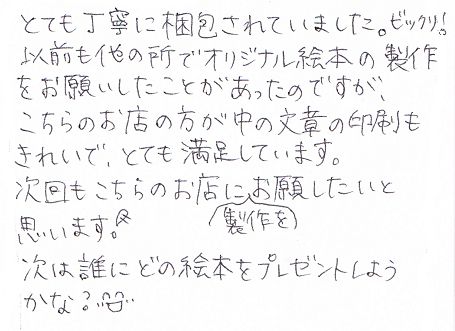 とても丁寧に梱包されていました。ビックリ!
以前も他の所でオリジナル絵本の製作
をお願いしたことがあったのですが、
こちらのお店の方が中の文章の印刷も
きれいで、とても満足しています。
次回もこちらのお店にお願したいと
(製作を)
思います。
次は誰にどの絵本をプレゼントしよう
かな?